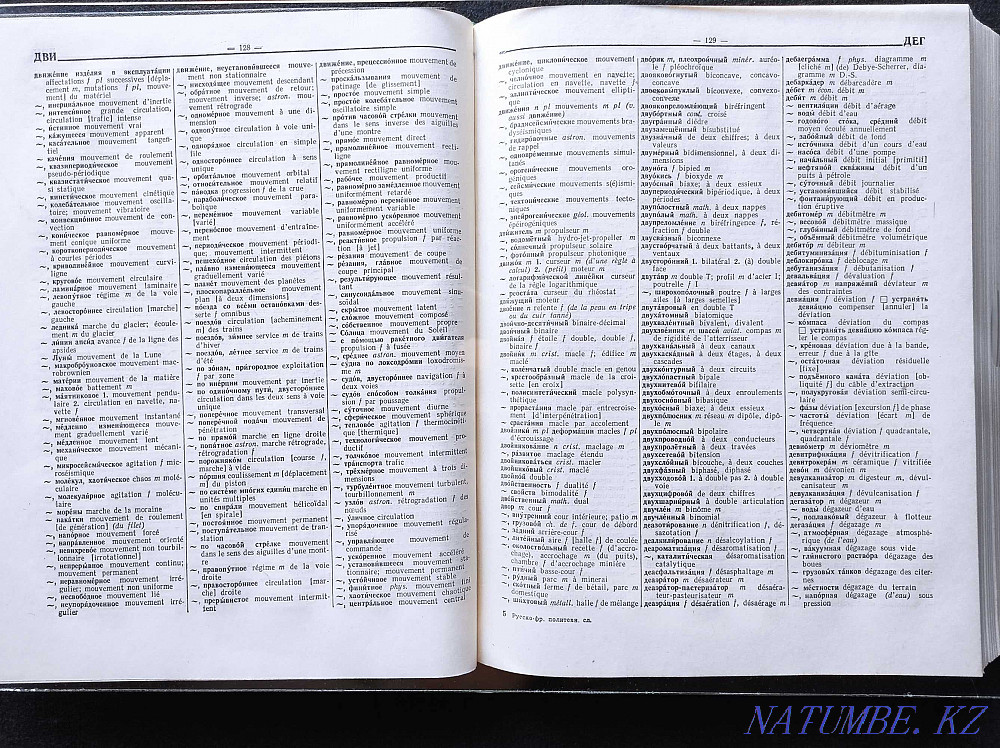 ДВИ
— 128 —
движе́ние изде́лия в эксплуата́ции
affectations f pl successives [dépla-
cement m, mutations f pl, mouve-
ment] du matériel
~, инерциа́льное mouvement d'inertie
~, интенси́вное grande circulation,
[trafic] intense
~, и́стинное mouvement vrai
~, ка́жущееся mouvement apparent
~, каса́тельное mouvement tangen-
tiel
~ каче́ния mouvement de roulement
~, квазипериоди́ческое mouvement
pseudo-périodique
~, квазистати́ческое mouvement qua-
si statique
~, кинети́ческое mouvement cinétique
~, колеба́тельное mouvement oscilla-
toire; mouvement vibratoire
~, конвекцио́нное mouvement de con-
vection
~, кони́ческое равноме́рное mouve-
ment conique uniforme
~, короткопериоди́ческое mouvement
à courtes périodes
~, криволине́йное mouvement curvi-
ligne
~, кругово́е mouvement circulaire
~, ламина́рное mouvement laminaire
~, левопу́тное régime m de la voie
gauche
~, левосторо́ннее circulation [marche]
gauche
~ ледника́ marche du glacier; écoule-
ment m du glacier
~ ли́нии апси́д avance f de la ligne des
apsides
~ Луны́ mouvement de la Lune
~, макробро́уновское mouvement mac-
robrownien
~ мате́рии mouvement de la matière
~, махово́е battement m
~, ма́ятниковое 1. mouvement pendu-
laire 2. circulation en navette, na-
vette f
~, мгнове́нное mouvement instantané
~, ме́дленно изменя́ющееся mouve-
ment graduellement varié
~, ме́дленное mouvement lent
~, механи́ческое mouvement mécani-
que
~, микросейсми́ческое agitation f mic-
roséismique
~ моле́кул, хаоти́ческое chaos m molé-
culaire
~, молекуля́рное agitation f molécu-
laire
~ море́ны marche de la moraine
~ нака́тки mouvement de roulement
[de génération] (du filet)
~, напо́рное mouvement forcé
~, напра́вленное mouvement orienté
~, невихрево́е mouvement non tourbil-
lonnaire [irrotationnel]
~, непреры́вное mouvement continu;
mouvement permanent
~, неравноме́рное mouvement irré-
gulier; mouvement non uniforme
~, несвобо́дное mouvement lié
~, неупоря́доченное mouvement irré-
gulier
движе́ние, неустанови́вшееся mouve-
ment non stationnaire
~, нисходя́щее mouvement descendant
~, обра́тное mouvement de retour;
mouvement inverse; astron. mou-
vement rétrograde
~, одноме́рное mouvement à une di-
mension
~, однопу́тное circulation à voie uni-
que
~, одноря́дное circulation en simple
file
~, односторо́ннее circulation à sens
unique
~, орбита́льное mouvement orbital
~, относи́тельное mouvement relatif
~ па́водка progression f de la crue
~, параболи́ческое mouvement para-
bolique
~, переме́нное mouvement variable
[varié]
~, перено́сное mouvement d'entraîne-
ment
~, периоди́ческое mouvement périodi-
que; mouvement intermittent
~, пешехо́дное circulation des piétons
~, пла́вно изменя́ющееся mouvement
graduellement varié
~ плане́т mouvement des planètes
~, плоскопаралле́льное mouvement
plan [à deux dimensions]
~ по́езда со все́ми остано́вками des-
serte f omnibus
~ поездо́в circulation [acheminement
m] des trains
~ поездо́в, зи́мнее service m de trains
d'hiver
~ поездо́в, ле́тнее service m de trains
d'été
~ по зо́нам, при́городное exploitation
f par zone
~ по ине́рции mouvement par inertie
~ по одино́чному пути́, двусторо́ннее
circulation dans les deux sens à voie
unique
~, попере́чное mouvement transversal
~ попере́чной пода́чи mouvement de
pénétration
~ по прямо́й marche en ligne droite
~, попя́тное astron. marche rétrograde,
rétrogradation f
~, порожняко́м circulation [course f,
marche] à vide
~ по́ршня coulisement m [déplacement
m] du piston
~ по систе́ме мно́гих едини́ц marche en
unités multiples
~ по спира́ли mouvement hélicoïdal
[en spirale]
~, постоя́нное mouvement permanent
~, поступа́тельное mouvement de tran-
slation
~ по часово́й стре́лке mouvement
dans le sens des aiguilles d'une mont-
re
~, правопу́тное régime m de la voie
droite
~, правосторо́ннее circulation [mar-
che] droite
~, преры́вистое mouvement intermit-
tent
движе́ние, прецессио́нное mouvement de
précession
~ проска́льзывания mouvement de
patinage [de glissement]
~, просто́е mouvement simple
~, просто́е колеба́тельное mouvement
oscillatoire simple
~ про́тив часово́й стре́лки mouvement
dans le sens inverse des aiguilles
d'une montre
~, прямо́е mouvement direct
~, прямолине́йное mouvement recti-
ligne
~, прямолине́йное равноме́рное mou-
vement rectiligne uniforme
~, рабо́чее mouvement productif
~, равноме́рно заме́дленное mouvement
uniformément retardé
~, равноме́рно переме́нное mouvement
uniformément variable
~, равноме́рно уско́ренное mouvement
uniformément accéléré
~, равноме́рное mouvement uniforme
~, реакти́вное propulsion f par réac-
tion [à jet]
~ ре́зания mouvement de coupe
~ ре́зания, гла́вное mouvement de
coupe principal
~, результи́рующее mouvement résul-
tant
~, синусоида́льное mouvement sinu-
soïdal
~, скры́тое mouvement latent
~, сло́жное mouvement composé
~, со́бственное mouvement propre
~ Со́лнца mouvement du Soleil
~ с по́мощью раке́тного дви́гателя
propulsion f à fusée
~, сре́днее astron. mouvement moyen
~ су́дна по локсодро́мии loxodromis-
me m
~ судо́в, двусторо́ннее navigation f à
deux voies
~ судо́в спо́собом толка́ния propul-
sion f par poussage
~, су́точное mouvement diurne
~, сфери́ческое mouvement sphérique
~, теплово́е agitation f thermocinéti-
que [thermique]
~, технологи́ческое mouvement pro-
ductif
~, толчко́вое mouvement intermittent
~ тра́нспорта trafic
~, трёхме́рное mouvement à trois di-
mensions
~, турбуле́нтное mouvement turbulent,
tourbillonnement m
~ узло́в astron. rétrogradation f des
nœuds
~, у́личное circulation
~, упоря́доченное mouvement régula-
risé
~, управля́ющее mouvement de
commande
~, уско́ренное mouvement accéléré
~, установи́вшееся mouvement sta-
tionnaire; mouvement permanent
~, усто́йчивое mouvement stable
~, фини́тное phys. mouvement fini
~, хаоти́ческое mouvement chaotique
~, центра́льное mouvement central
— 129 —
ДЕГ
движе́ние, циклони́ческое mouvement
cyclonique
~, челно́чное mouvement en navette;
circulation en navette, navette f
~, эллипти́ческое mouvement ellipti-
que
движе́ния n pl mouvements m pl (с.
aussi движе́ние)
~, брадисейсми́ческие mouvements bra-
dyséismiques
~, гидравли́ческие astron. mouvements
de rappel
~, одновре́менные mouvements simul-
tanés
~, орогени́ческие mouvements oro-
géniques
~, сейсми́ческие mouvements s(é)ismi-
ques
~, тектони́ческие mouvements tecto-
niques
~, эпейрогени́ческие géol. mouvements
épeirogéniques
дви́житель m propulseur m
~, водомётный hydro-jet-propeller m
~, со́лнечный propulseur solaire
~, фото́нный propulseur photonique
движо́к m 1. curseur m (d'une règle à
calcul) 2. (petit) moteur m
~ логарифми́ческой лине́йки curseur
de la règle logarithmique
~ реоста́та curseur du rhéostat
дви́жущий moteur
двое́ние n refente f (de la peau en tripe
ou du cuir tanné)
двои́чно-десяти́чный binaire-décimal
двои́чный binaire
двойна́я f étoile f double, double f,
binaire f
двойни́к m crist. macle f; édifice m
maclé
~, коле́нчатый double macle en genou
~, крестообра́зный macle de la croi-
sette [en croix]
~, полисинтети́ческий macle polysyn-
thétique
~ прораста́ния macle par entrecroise-
ment [d'interpénétration]
~ сраста́ния macle par accolement
двойники́ m pl деформа́ции macles f pl
d'écrouissage
двойникова́ние n crist. maclage m
~, разви́тое maclage étendu
двойникова́ться crist. macler
двойнико́вый crist. maclé
двойно́й double
дво́йственность f dualité f
~ свойств bimodalité f
дво́йственный math. dual
двор m cour f
~, вну́тренний cour intérieure; patio m
~, грузово́й ch. de f. cour de débord
~, за́дний arrière-cour f
~, лите́йный aire f [halle f] de coulée
~, околоство́льный recette f (d'accro-
chage), accrochage m (du puits),
chambre f d'accrochage minière
~, пти́чий basse-cour f
~, ру́дный parc m à minerai
~, ско́тный ferme f de bétail, parc m
domestique
~, ши́хтовый métall. halle f de mélange
дво́рик m, плеохро́ичный minér. auréo-
le f pléochroïque
двояково́гнутый biconcave, concavo-
concave
двояковы́пуклый biconvexe, convexo-
convexe
двоякопреломля́ющий biréfringent
двубо́ртный conf. croisé
двугра́нный dièdre
двузамещённый bisubstitué
двузна́чный de deux chiffres; à deux
valeurs
двуме́рный bidimensionnel, à deux di-
mensions
двуно́га f bipied m
двуо́кись f bioxyde m
двуо́сный biaxe; à deux essieux
двупериоди́ческий bipériodique, à deux
périodes
двупо́лостный math. à deux nappes
двупо́лый math. à deux nappes
двупреломле́ние n biréfringence f, ré-
fraction f double
двусвя́зный biconnexe
двуство́рчатый à deux battants, à deux
vantaux
двусторо́нний 1. bilatéral 2. (à) double
face
двута́вр m double T; profil m d'acier I;
poutrelle f I
~, широкополо́чный poutre f à larges
ailes [à larges semelles]
двута́вровый en double T
двуу́глый biotique
двухвале́нтный bivalent, divalent
двухве́нчик m шасси́ aviat. compas m
de rigidité de l'atterrisseur
двухкана́льный à deux canaux
двухкаска́дный à deux étages, à deux
cascades
двухко́нтурный à deux circuits
двухлопастны́й bipale
двухнитево́й bifilaire
двухобмо́точный à deux enroulements
двухосно́вный bibasique
двухо́сный biaxe; à deux essieux
двухпо́люсник m réseau m dipôle, dipô-
le m
двухпо́люсный bipolaire
двухпро́водный à deux conducteurs
двухпролётный à deux travées
двухсе́точный bitension
двухсло́йный bicouche, à deux couches
двухфа́зный biphasé, diphasé
двухходово́й 1. à double pas 2. à double
voie
двухцифрово́й de deux chiffres
двухшарни́рный à double articulation
двучле́н m binôme m
двучле́нный binomial
деазоти́рование n dénitrification f, dé-
sazotation f
деалкили́рование n désalcoylation f
деароматиза́ция f désaromatisation f
~, каталити́ческая désaromatisation
catalytique
деасфальтиза́ция f désasphaltage m
деаэра́тор m désaérateur m
деаэра́тор-пастериза́тор m désaéra-
teur-pasteurisateur m
деаэра́ция f désaération f, désaérage m
дебаегра́мма f phys. diagramme m
[cliché m] (de) Debye-Scherrer, dia-
gramme m D.-S.
дебарка́дер m débarcadère m
де́бет m écon. débit m
деби́т m débit m
~ вентиля́ции débit d'aérage
~ воды́ débit d'eau
~ годово́го сто́ка, сре́дний débit
moyen écoulé annuellement
~, забо́йный débit de fond
~ исто́чника débit d'un cours d'eau
~ насо́са débit d'une pompe
~, нача́льный débit initial [primitif]
~ нефтяно́й сква́жины débit d'un
puits à pétrole
~, су́точный débit journalier
~, установи́вшийся débit stabilisé
~, фонтани́рующий débit en produc-
tion éruptive
дебитоме́р m débitmètre m
~, весово́й débitmètre massique
~, глуби́нный débitmètre de fond
~, объёмный débitmètre volumétrique
дебито́р m débiteur m
дебитуминиза́ция f débituminisation f
деблокиро́вка f déblocage m
дебутаниза́ция f débutanisation f
девальва́ция f dévaluation f
девиа́тор m напряже́ний déviateur m
des contraintes
девиа́ция f déviation f □ устрани́ть
девиа́цию compenser [annuler] la
déviation
~ ко́мпаса déviation du compas
□ устрани́ть девиа́цию ко́мпаса rég-
ler le compas
~, кре́новая déviation due à la bande,
erreur f due à la gîte
~, оста́точная déviation résiduelle
[fixe]
~ подъёмного кана́та déviation [ob-
liquité f] du câble d'extraction
~, полукругова́я déviation semi-circu-
laire
~ фа́зы déviation [excursion f] de phase
~ частоты́ déviation [écart m] de
fréquence
~, четвертна́я déviation f quadrantale,
quadrantale f
девио́метр m déviomètre m
девитрифика́ция f dévitrification f
девитрокера́м m céramique f vitrifiée
дево́н m dévonien m
девулканиза́тор m digesteur m, dévul-
canisateur m
девулканиза́ция f dévulcanisation f
дегаза́тор m dégazeur m
~ воды́ dégazeur d'eau
~, поплавко́вый dégazeur à flotteur
дегаза́ция f dégazage m
~, атмосфе́рная dégazage atmosphé-
rique (de l'eau)
~, ва́куумная dégazage sous vide
~ гли́нистого раство́ра dégazage des
boues
~ грузовы́х та́нков dégazage des citer-
nes
~ ме́стности dégazage du terrain
~, напо́рная dégazage (d'eau) sous
pression
5 Русско-фр. политехн. сл.
NATUMBE. KZ